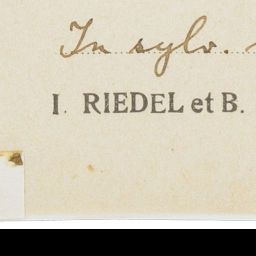 In sylv.
I. RIEDEL et B.